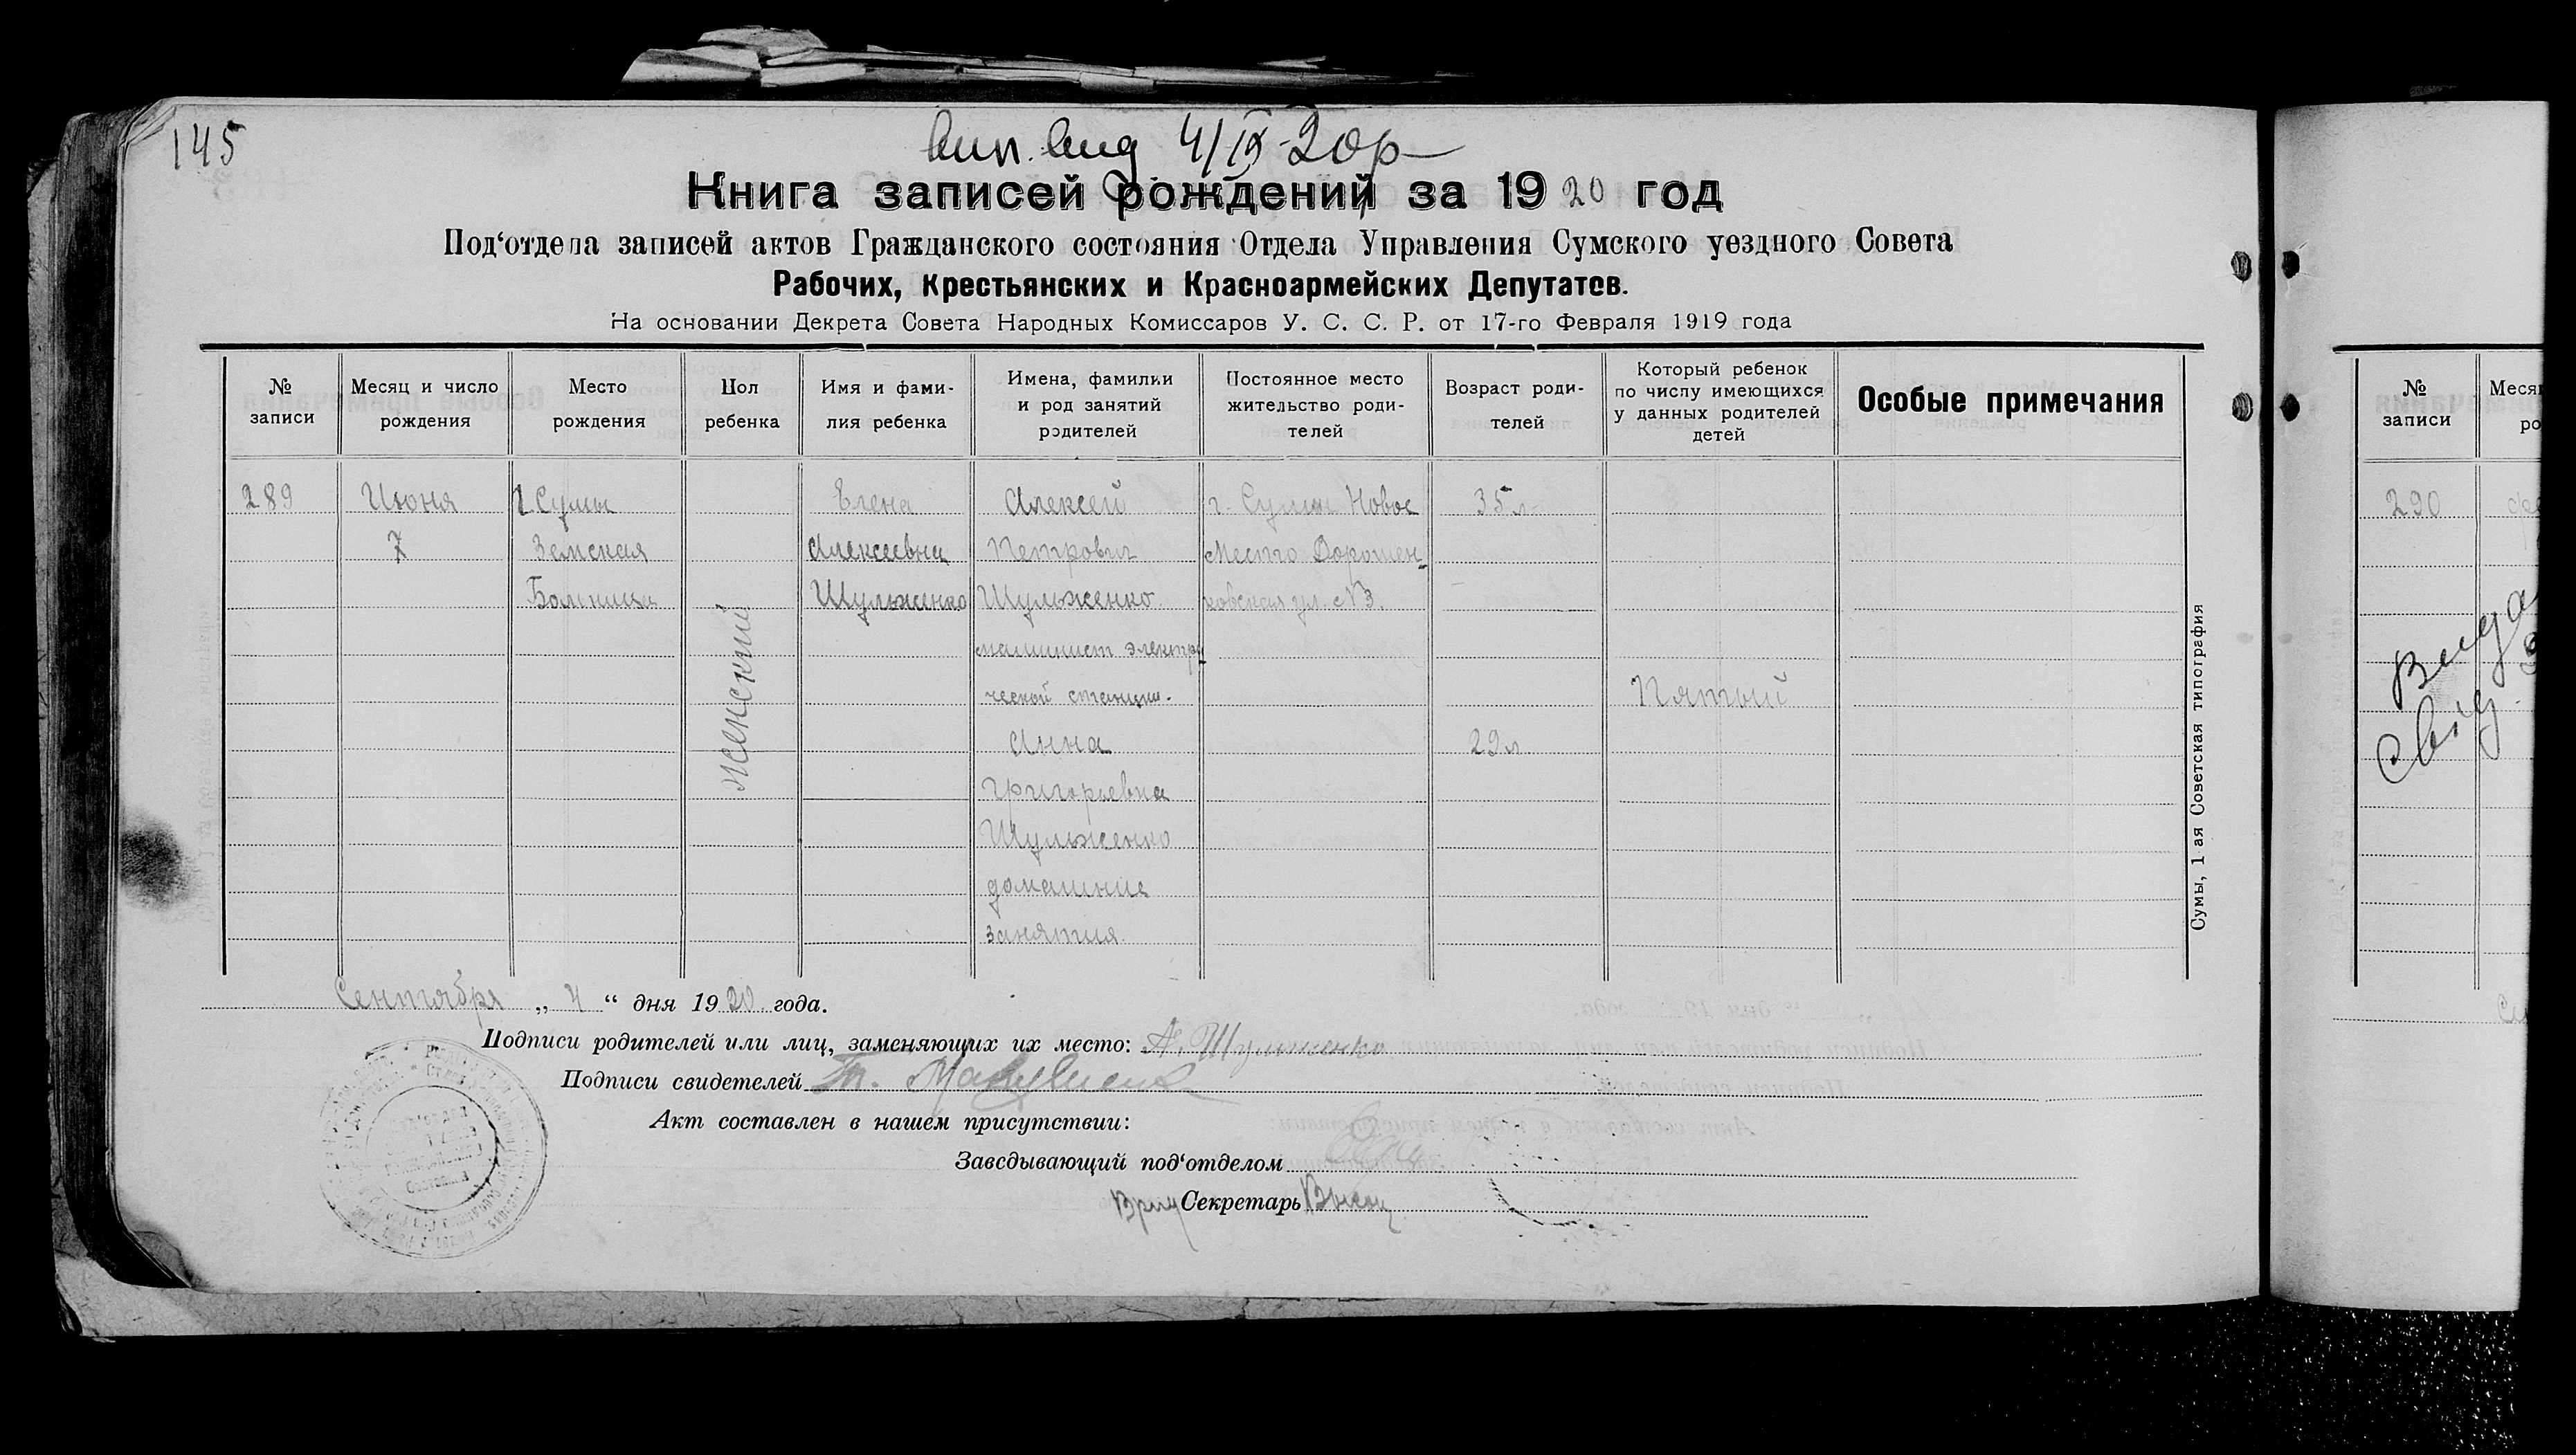 145
вип. вид 4/IX-20р
Книга записей рождений за 1920 год
Под‘отдела записей актов Гражданского состояния Отдела Управления Сумского уездного Совета
Рабочих, Крестьянских и Красноармейских Депутатов.
На основании Декрета Совета Народных Комиссаров У. С. С. Р. от 17-го Февраля 1919 года
№ записи
Месяц и число рождения
Место рождения
Пол ребенка
Имя и фами-
лия ребенка
Имена, фамилии
и род занятий
родителей
Постоянное место
жительство роди-
телей
Возраст роди-
телей
Который ребенок
по числу имеющихся
у данных родителей
детей
Особые примечания
289
Июня
7
г. Сумы
Земская
Больница
женский
Елена
Алексеевна
Шульженко
Алексей
Петрович
Шульженко
машинист электри
ческой станции.
Анна
Григорьевна
Шульженко
домашние
занятия.
г. Сумы Новое
Место Дорошен-
ковская ул. №3.
35 л
29 л
Пятый
Сумы, 1-ая Советская типография
Сентября „ 4 “ дня 1920 года.
Подписи родителей или лиц, заменяющих их место: А. Шульженко
Подписи свидетелей
Акт составлен в нашем присутствии:
Заведывающий под‘отделом
Врид Секретарь
№
записи
Меся
ро
290